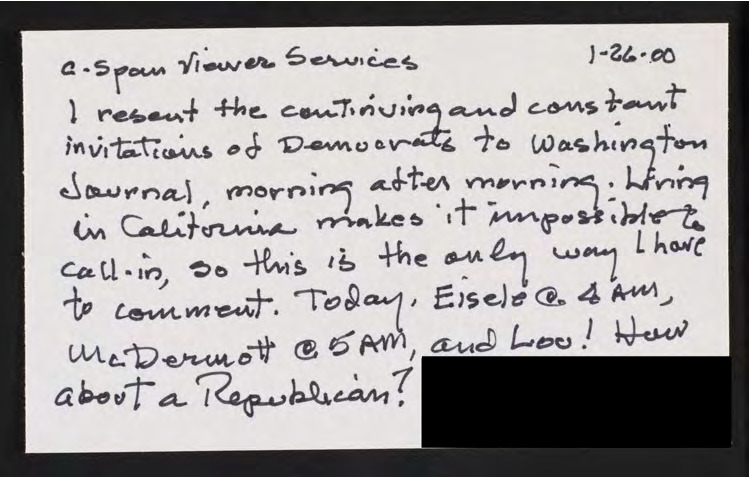 C-Span Viewer Services 1-26-00
I resent the continuing and constant
invitations of Democrats to Washington
Journal, morning after morning. Living
in California makes it impossible to
call-in, so this is the only way I have
to comment. Today, Eisele @ 4 AM,
McDermott @ 5 AM, and Loo! How
about a Republican?